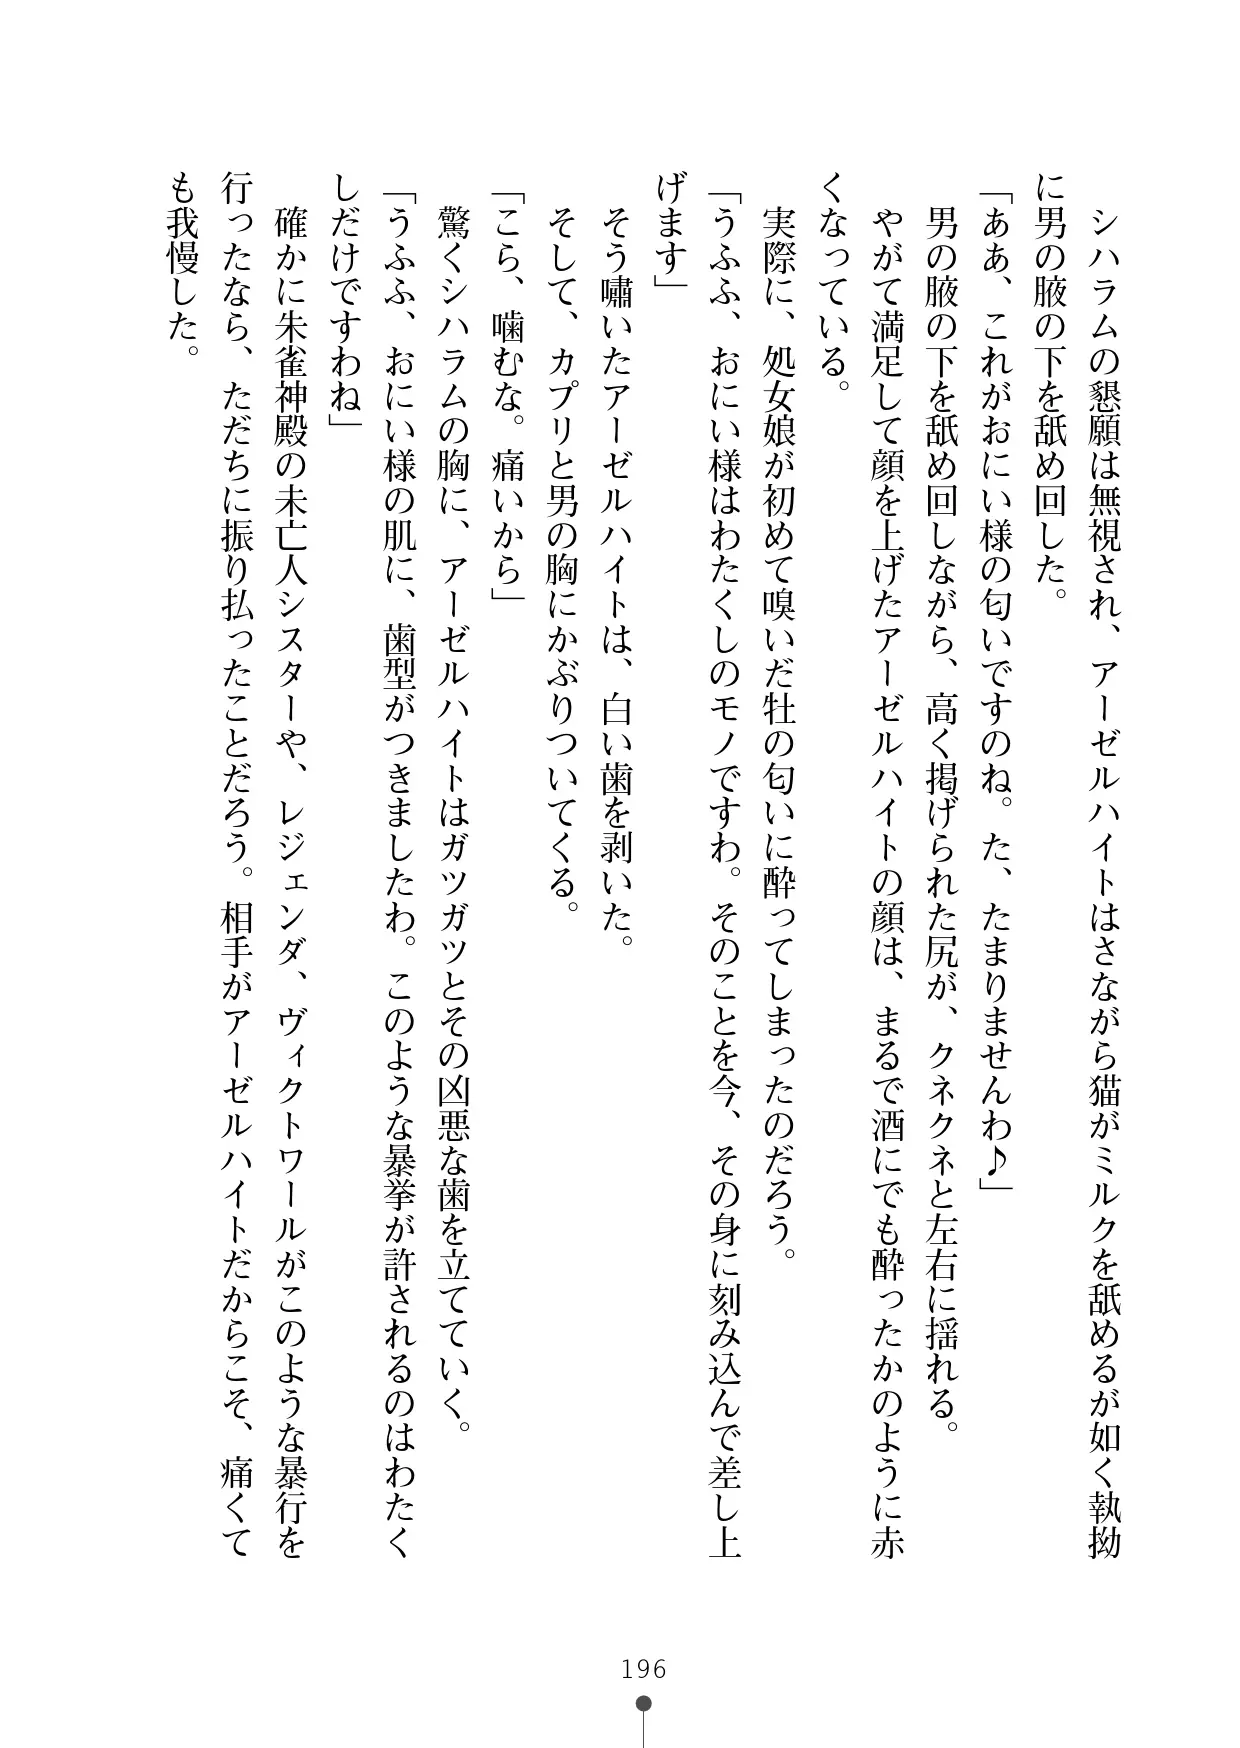 シハラムの懇願は無視され、アーゼルハイトはさながら猫がミルクを舐めるが如く執拗
に男の腋の下を舐め回した。
「ああ、これがおにい様の匂いですのね。た、たまりませんわ♪」
男の腋の下を舐め回しながら、高く掲げられた尻が、クネクネと左右に揺れる。
やがて満足して顔を上げたアーゼルハイトの顔は、まるで酒にでも酔ったかのように赤
くなっている。
実際に、処女娘が初めて嗅いだ牡の匂いに酔ってしまったのだろう。
「うふふ、おにい様はわたくしのモノですわ。そのことを今、その身に刻み込んで差し上
げます」
そう嘯いたアーゼルハイトは、白い歯を剥いた。
そして、カプリと男の胸にかぶりついてくる。
「こら、噛むな。痛いから」
驚くシハラムの胸に、アーゼルハイトはガツガツとその凶悪な歯を立てていく。
「うふふ、おにい様の肌に、歯型がつきましたわ。このような暴挙が許されるのはわたく
しだけですわね」
確かに朱雀神殿の未亡人シスターや、レジェンダ、ヴィクトワールがこのような暴行を
行ったなら、ただちに振り払ったことだろう。相手がアーゼルハイトだからこそ、痛くて
も我慢した。
196